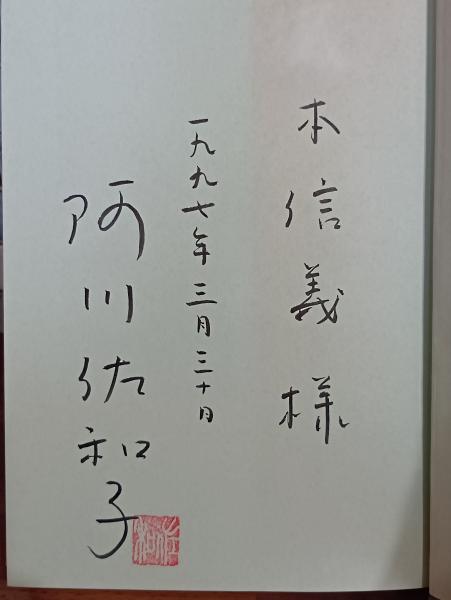 本信義様
一九九七年三月三十日
阿川佐和子
佐和